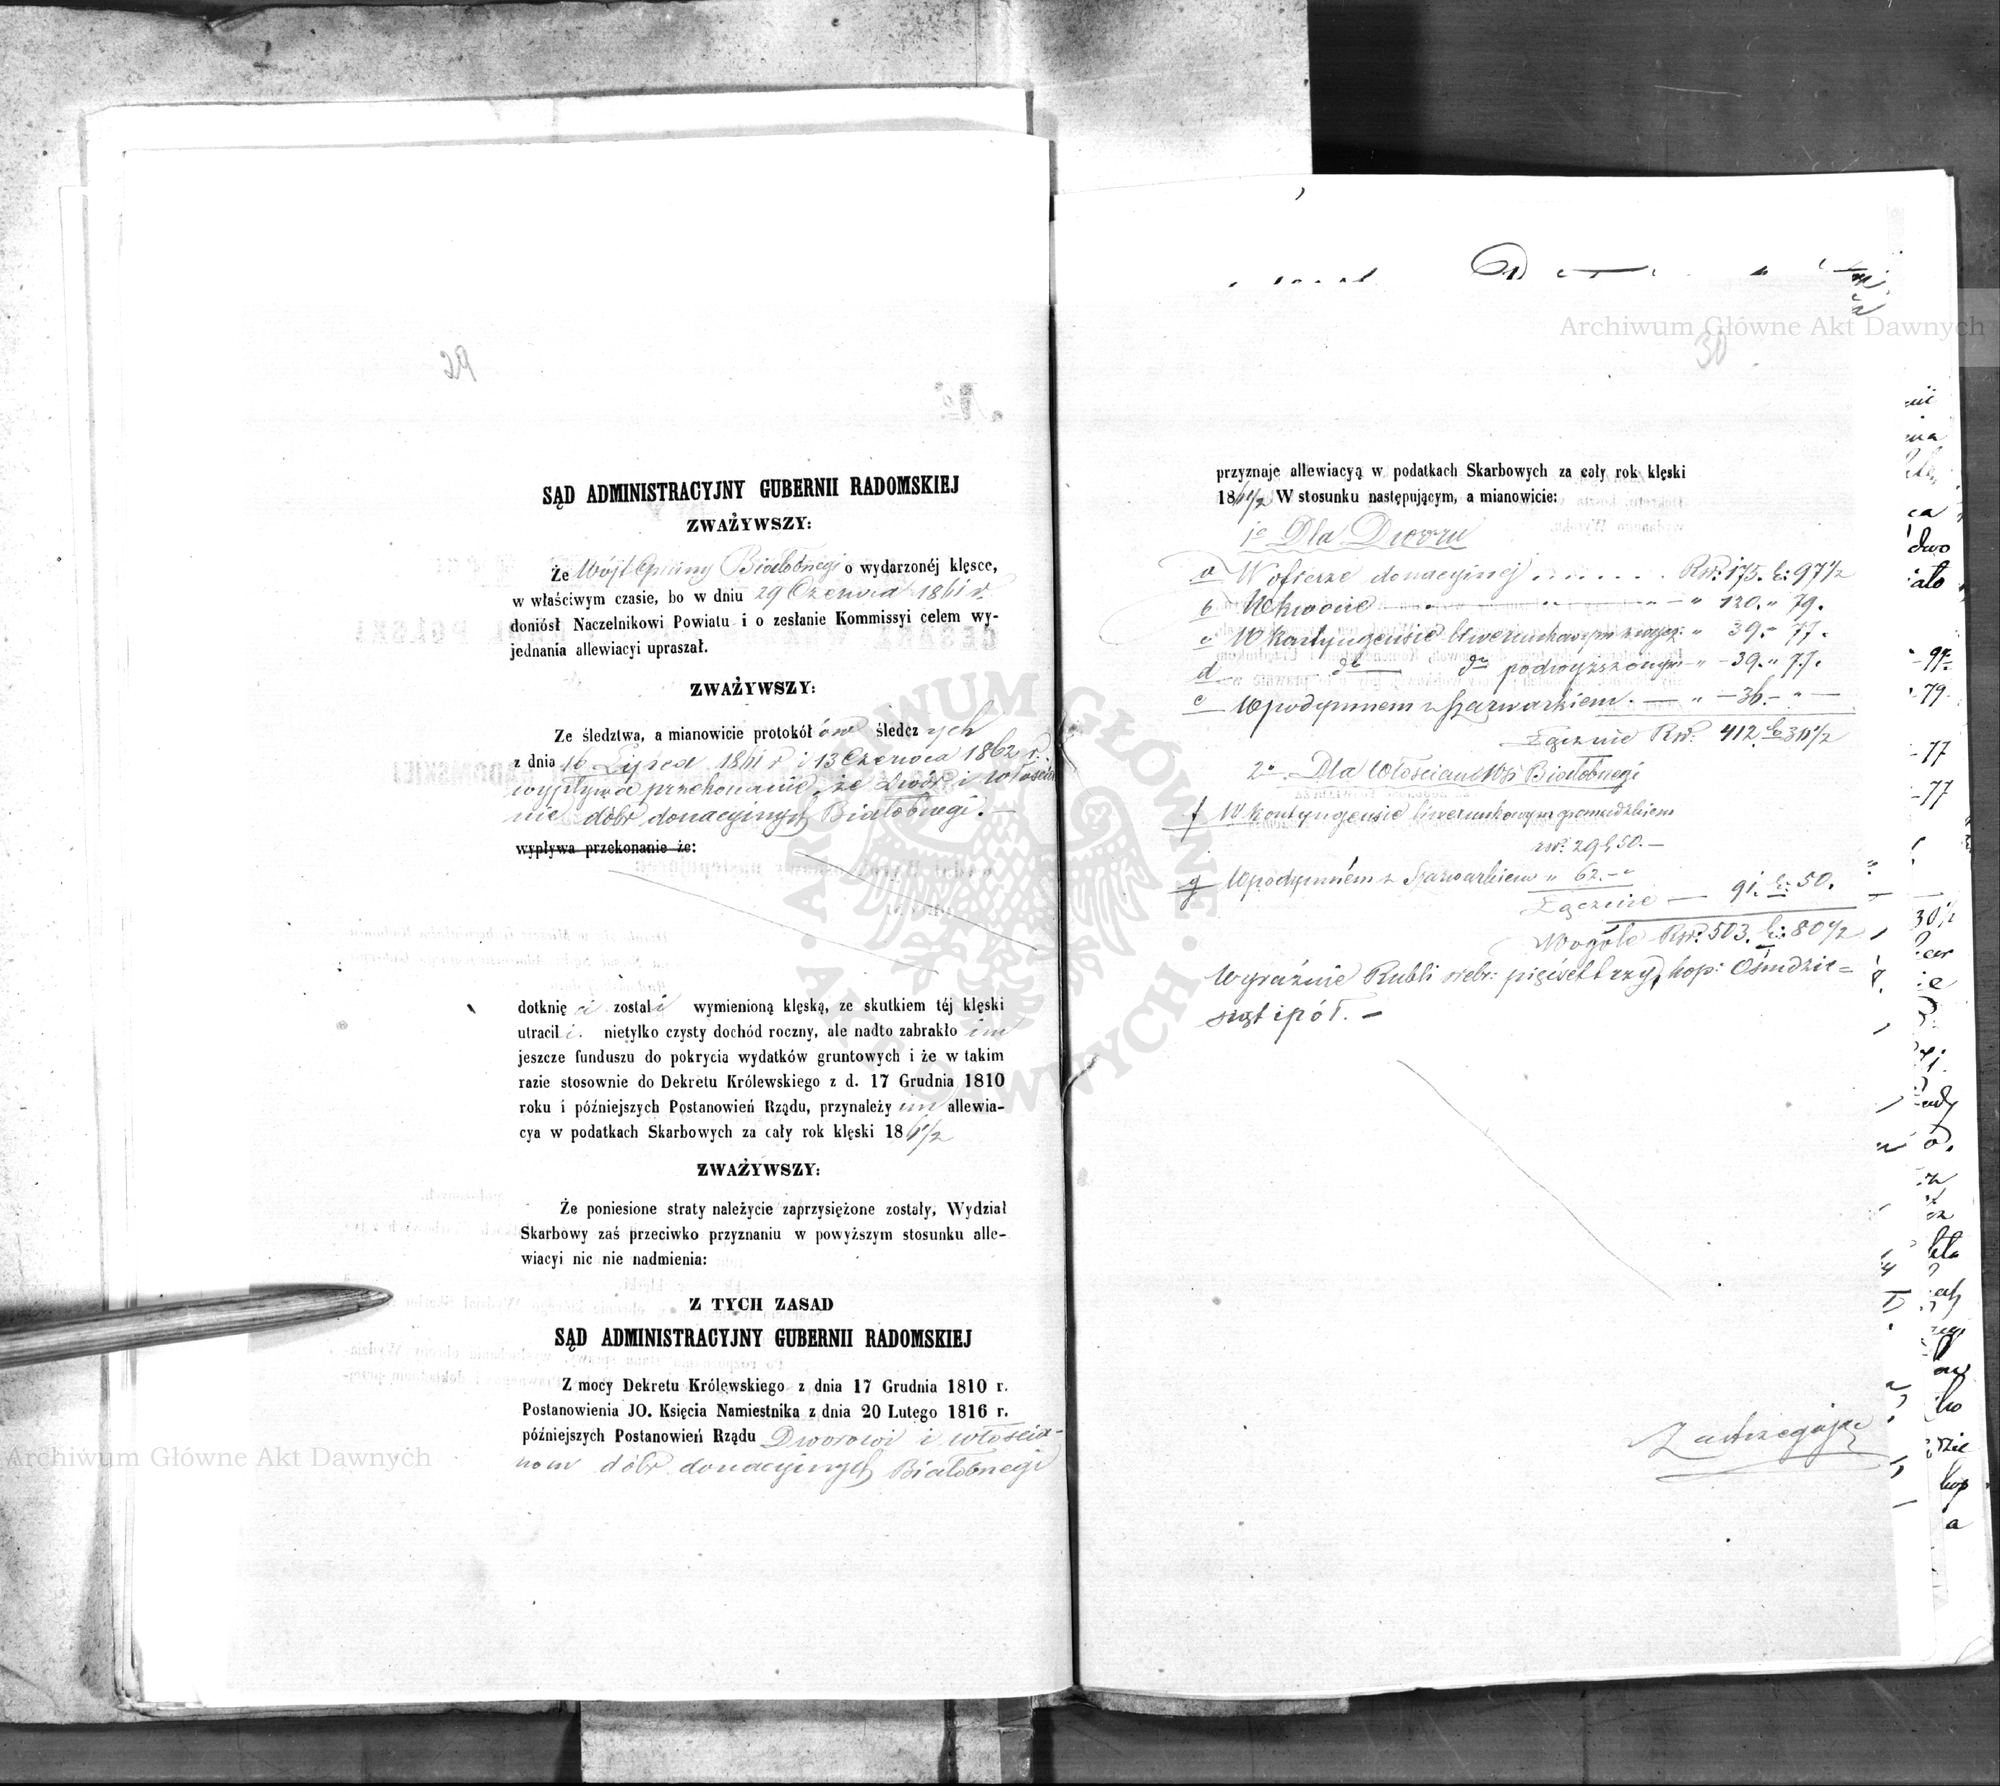 SĄD ADMINISTRACYJNY GUBERNII RADOMSKIEJ
ZWAŻYWSZY:
Że Wójt Gminy Białobrzegi o wydarzonéj klęsce,
w właściwym czasie, bo w dniu 29 Czerwca 1861 r.
doniósł Naczelnikowi Powiatu i o zesłanie Kommissyi celem wy-
jednania allewiacyi upraszał.
ZWAŻYWSZY:
Ze śledztwa, a mianowicie protokółów śledczych
z dnia 16 Lipca 1861 r i 13 Czerwca 1862 r.
wypływa przekonanie, że Dwór i Włościa
nie dóbr donacyjnych Białobrzegi. —
wypływa przekonanie że:
dotknięci zostali wymienioną klęską, ze skutkiem téj klęski
utracili nietylko czysty dochód roczny, ale nadto zabrakło im
jeszcze funduszu do pokrycia wydatków gruntowych i że w takim
razie stosownie do Dekretu Królewskiego z d. 17 Grudnia 1810
roku i późniejszych Postanowień Rządu, przynależy im allewia-
cya w podatkach Skarbowych za cały rok klęski 1861/2
ZWAŻYWSZY:
Że poniesione straty należycie zaprzysiężone zostały, Wydział
Skarbowy zaś przeciwko przyznaniu w powyższym stosunku alle-
wiacyi nic nie nadmienia:
Z TYCH ZASAD
SĄD ADMINISTRACYJNY GUBERNII RADOMSKIEJ
Z mocy Dekretu Królewskiego z dnia 17 Grudnia 1810 r.
Postanowienia JO. Księcia Namiestnika z dnia 20 Lutego 1816 r.
późniejszych Postanowień Rządu Dworowi i włościa-
nom dóbr donacyjnych Białobrzegi
30
przyznaje allewiacyą w podatkach Skarbowych za cały rok klęski
1861/2 W stosunku następującym, a mianowicie:
1e Dla Dworu
a W ofierze donacyjnej . . . . . . . Rsr: 175. k: 97 1/2
b W kwocie — " 120. " 79.
c W kontyngensie liwerunkowym " 39. - 77.
d do do podwyższonym — " — 39. " 77.
e W podymnem z szarwarkiem. — " — 36. — " —
Łącznie Rsr. 412. k 30 1/2
2e Dla Włościan Wsi Białobrzegi
f W kontyngensie liwerunkowym gromadzkiem
rsr. 29 k. 50. —
g W podymnem z szarwarkiem " 62. - "
Łącznie — 91. k: 50.
Wogóle Rsr: 503. k: 80 1/2
Wyraźnie Rubli srebr: pięćset trzy, kop: Ośmdzie=
siąt i pół. —
Zastrzegając
Archiwum Główne Akt Dawnych
Archiwum Główne Akt Dawnych
ARCHIWUM GŁÓWNE · AKT DAWNYCH ·